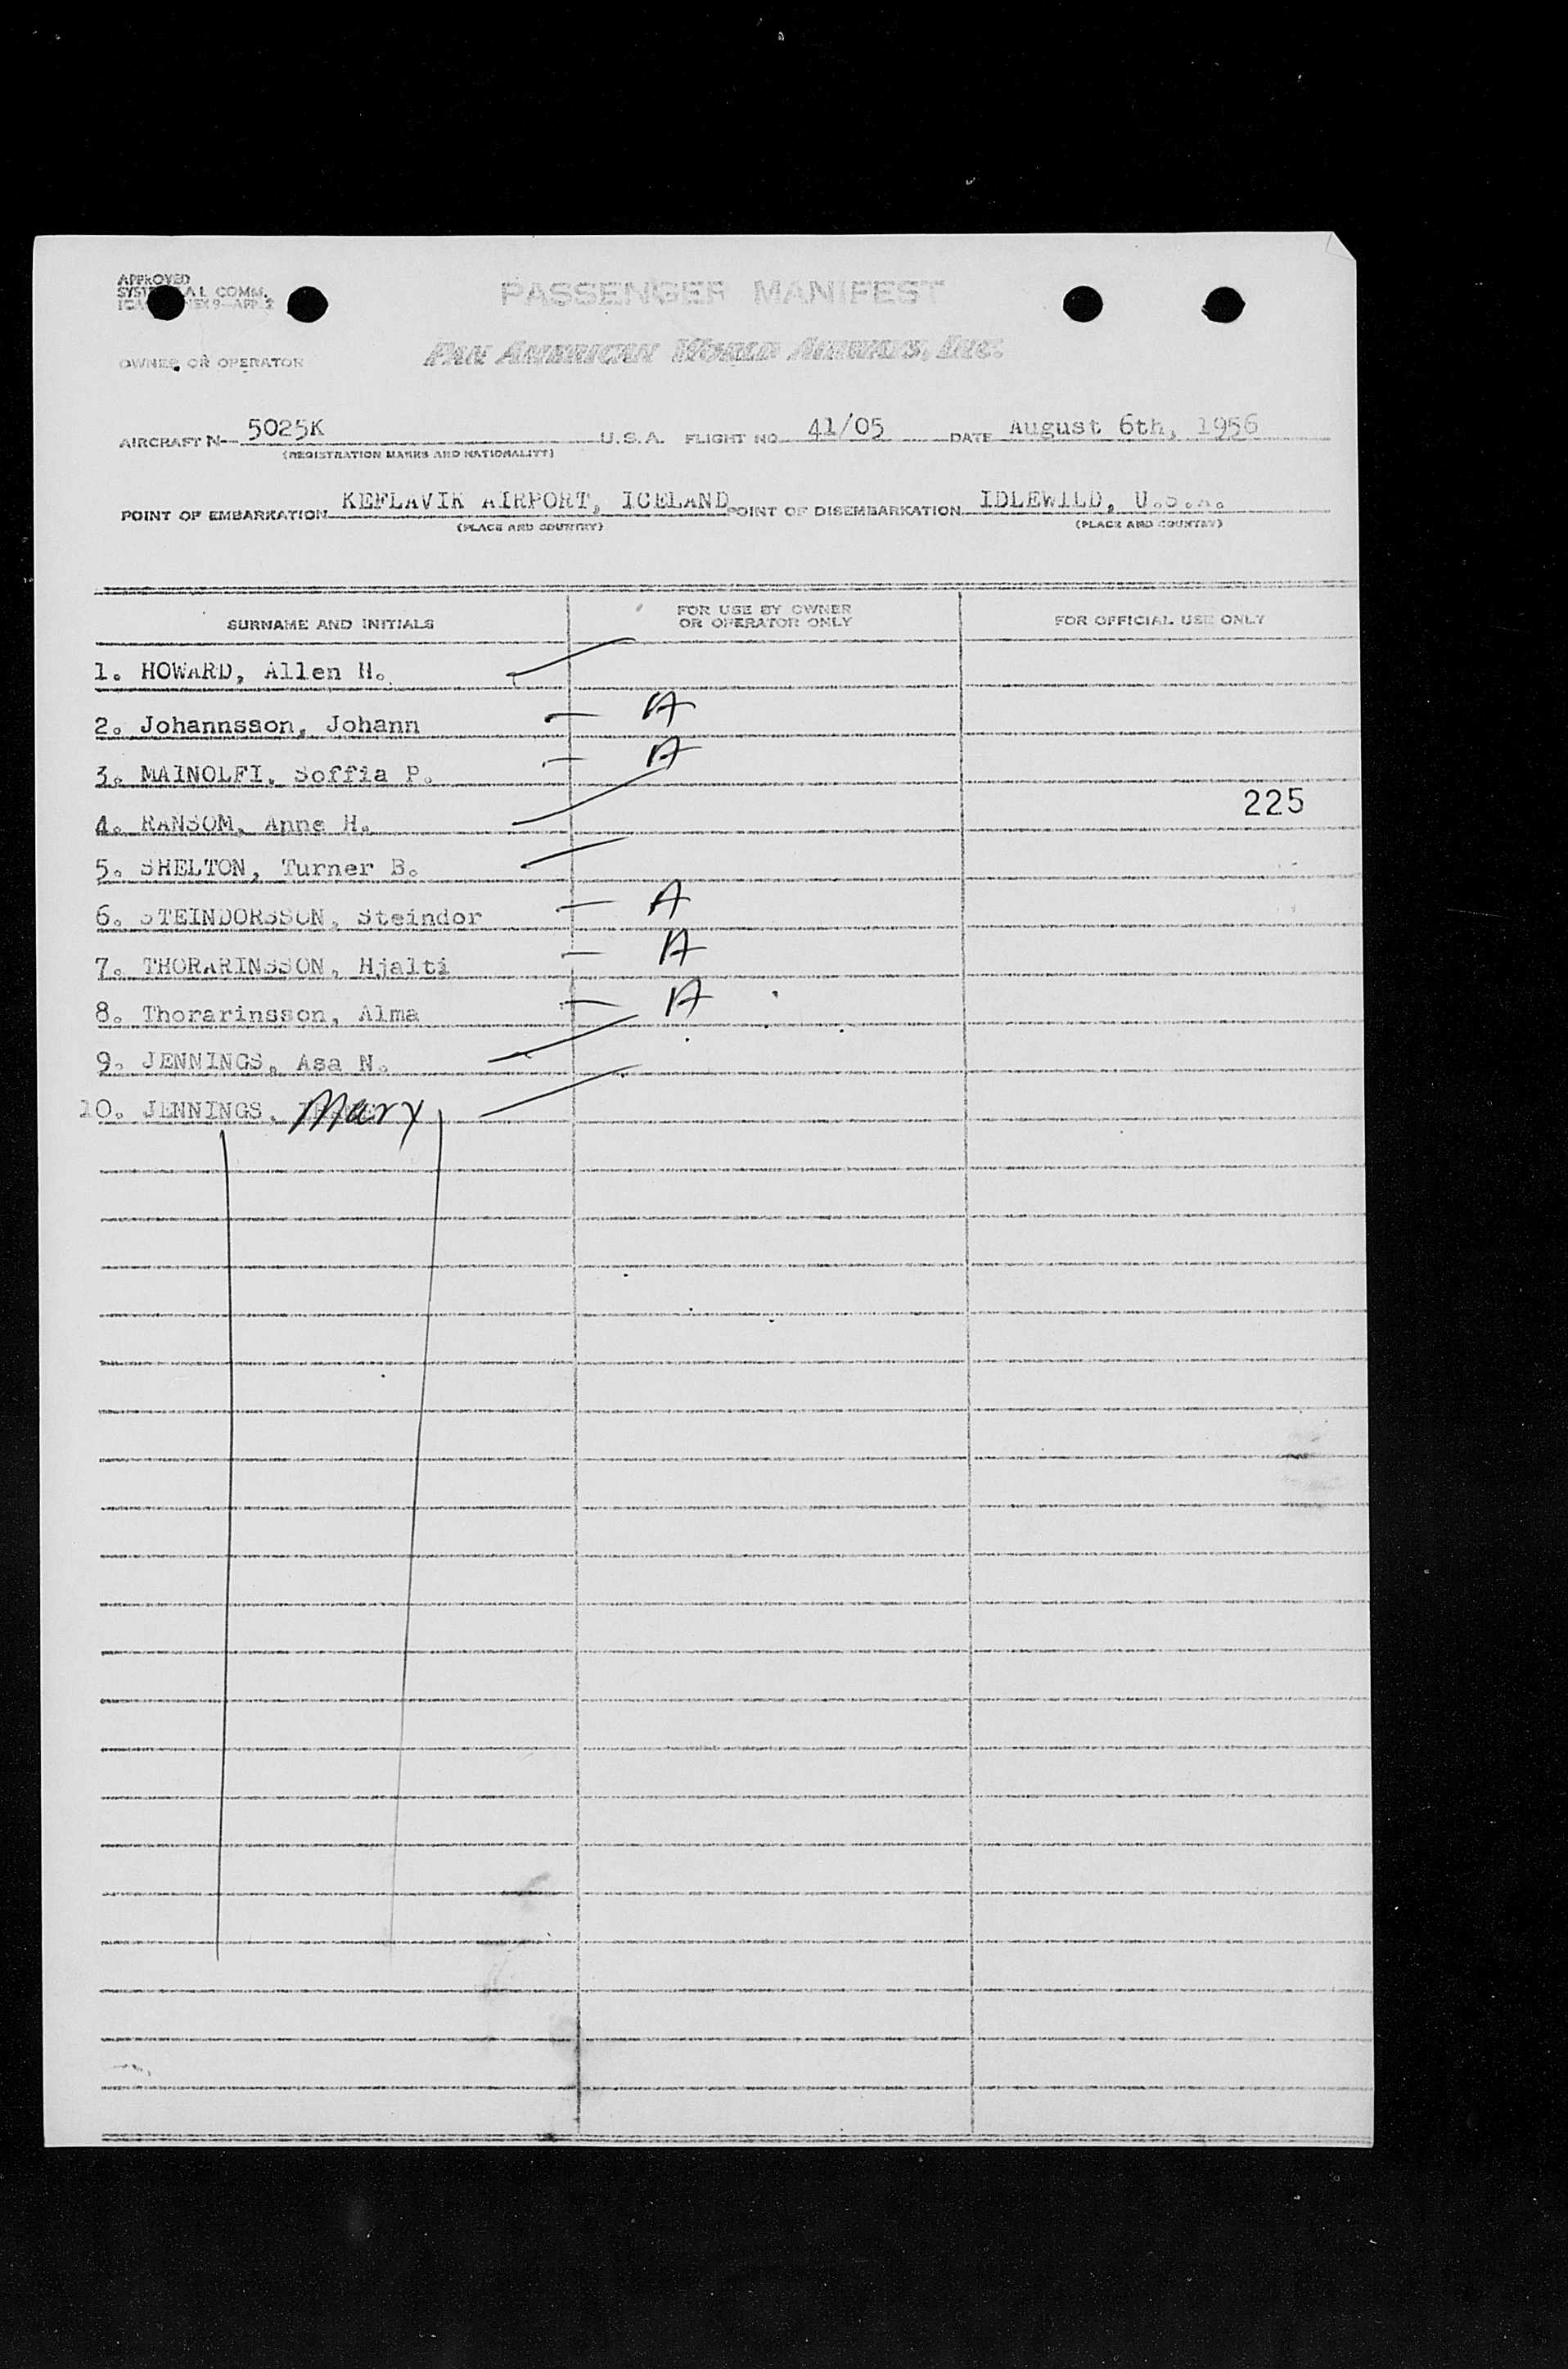 APPROVED
SYSTEM A.L. COMM.
9—APP. 2
PASSENGER MANIFEST
OWNER OR OPERATOR
PAN AMERICAN WORLD AIRWAYS, INC.
AIRCRAFT N- 5025K U.S.A. FLIGHT NO. 41/05 DATE August 6th, 1956
(REGISTRATION MARKS AND NATIONALITY)
POINT OF EMBARKATION KEFLAVIK AIRPORT, ICELAND POINT OF DISEMBARKATION IDLEWILD, U.S.A.
(PLACE AND COUNTRY) (PLACE AND COUNTRY)
SURNAME AND INITIALS
FOR USE BY OWNER
OR OPERATOR ONLY
FOR OFFICIAL USE ONLY
1. HOWARD, Allen H.
2. Johannsson, Johann — A
3. MAINOLFI, Soffia P. — A
225
4. RANSOM, Anne H.
5. SHELTON, Turner B.
6. STEINDORSSON, Steindor — A
7. THORARINSSON, Hjalti — A
8. Thorarinsson, Alma — A
9. JENNINGS, Asa N.
10. JENNINGS, Mary